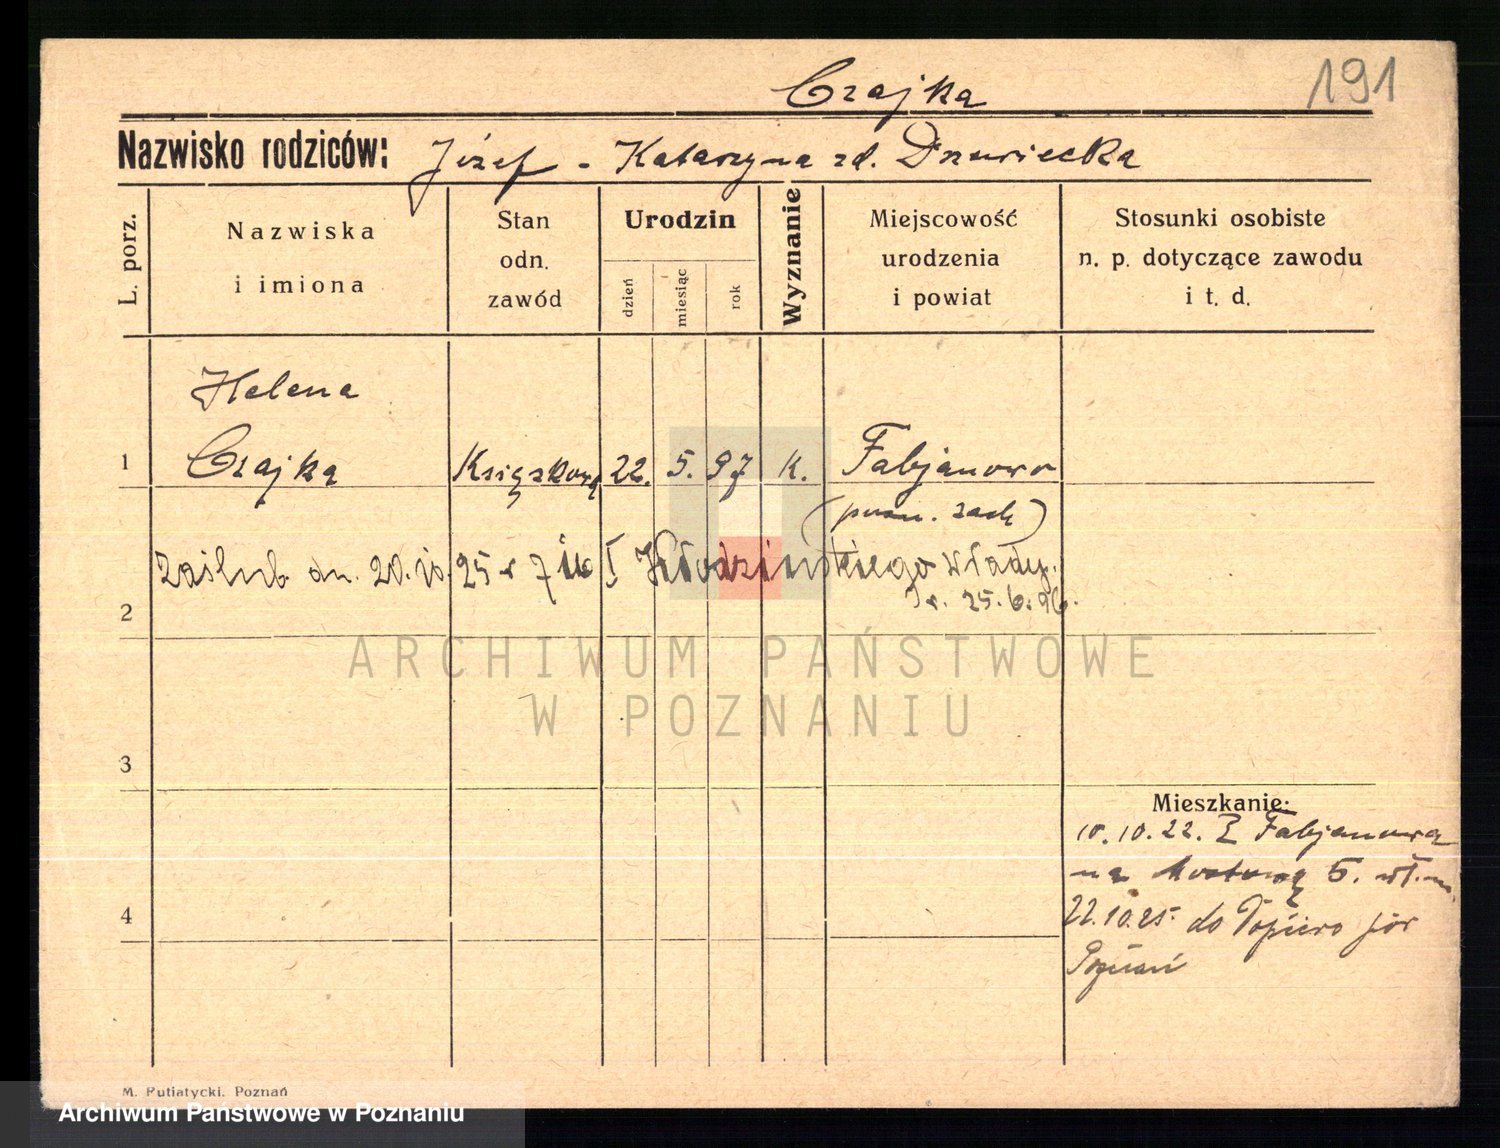 Czajka
191
Nazwisko rodziców: Józef - Katarzyna zd. Drzewiecka
L. porz.
Nazwiska
i imiona
Stan
odn.
zawód
Urodzin
dzień
miesiąc
rok
Wyznanie
Miejscowość
urodzenia
i powiat
Stosunki osobiste
n. p. dotyczące zawodu
i t. d.
Helena
1 Czajka Księgkowa 22. 5. 97 K. Fabjanowo
(pozn. zach)
zaślub. dn. 20. 10. 25 r Kłodzińskiego Włady.
2 25. 6. 96.
ARCHIWUM PAŃSTWOWE
W POZNANIU
3
Mieszkanie:
10. 10. 22. Z Fabjanowa
na 5. wł. m.
4 22.10.25 do
Poznań
M. Putiatycki, Poznań
Archiwum Państwowe w Poznaniu